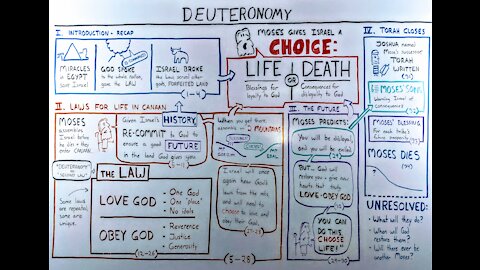 DEUTERONOMY
I. INTRODUCTION - RECAP
MIRACLES
in EGYPT
save Israel
GOD SPOKE
to the whole nation,
gave the LAW
ISRAEL BROKE
the Law,
FORFEITED LAND
(1-4)
MOSES GIVES ISRAEL A
CHOICE:
LIFE OR DEATH
Blessings for
loyalty to God
Consequences for
disloyalty to God
IV. TORAH CLOSES
JOSHUA named
Moses's successor
TORAH
WRITTEN
(31)
MOSES' SONG
warning Israel of
consequences
(32)
MOSES' BLESSING
for each tribe's
future prosperity
(33)
MOSES DIES
(34)
UNRESOLVED:
• What will they do?
• When will God
restore them?
• Will there ever be
another Moses?
II. LAWS FOR LIFE IN CANAAN
MOSES
assembles
Israel before
he dies + they
enter CANAAN.
Given Israel's HISTORY
RE-COMMIT to God to
ensure a good
FUTURE
in the land God gives you.
(5-11)
When you get there,
assemble on 2 MOUNTAINS
MT.
GERIZIM
MT.
EBAL
Israel will once
again hear God's
laws and will
need to
CHOOSE to love
and obey
their God.
(27-28)
"DEUTERONOMY"
=
"SECOND LAW"
Some laws
are repeated,
some are
unique.
THE LAW
LOVE GOD
- One God
- One "place"
- No idols
OBEY GOD
- Reverence
- Justice
- Generosity
(12-26)
(5-28)
III. THE FUTURE
MOSES PREDICTS:
You will be disloyal,
and you will be exiled.
(29)
BUT... God will
restore you + give new
hearts that truly
LOVE + OBEY GOD
(30)
"YOU CAN
DO THIS
CHOOSE
LIFE!"
(29-30)